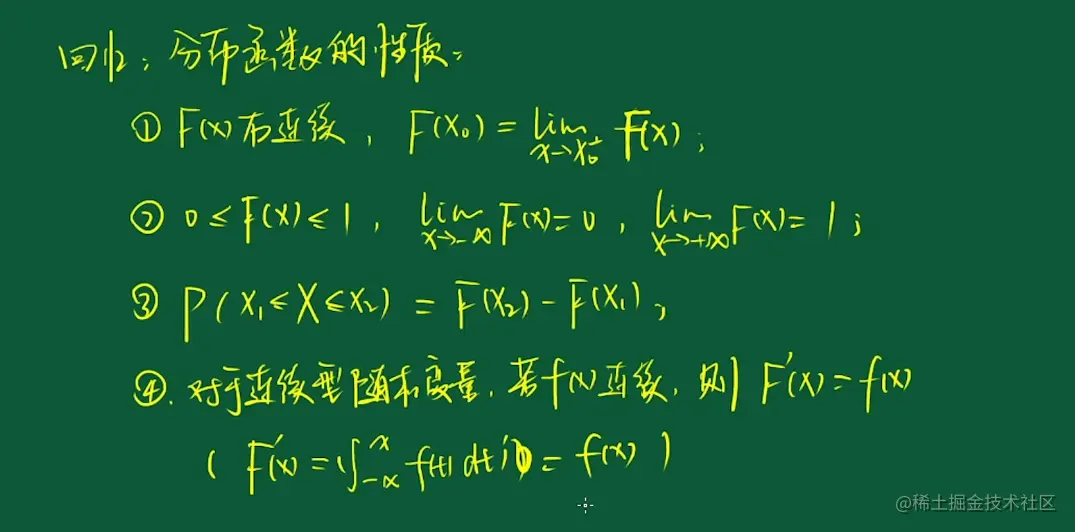 回归：分布函数的性质。
① F(x)右连续，F(x₀) = lim x→x₀⁺ F(x)；
② 0 ≤ F(x) ≤ 1，lim x→-∞ F(x) = 0，lim x→+∞ F(x) = 1；
③ P(x₁ ≤ X ≤ x₂) = F(x₂) - F(x₁)；
④. 对于连续型随机变量，若f(x)连续，则 F'(x) = f(x)
( F'(x) = (∫_{-∞}^{x} f(t) dt)' = f(x) )
@稀土掘金技术社区